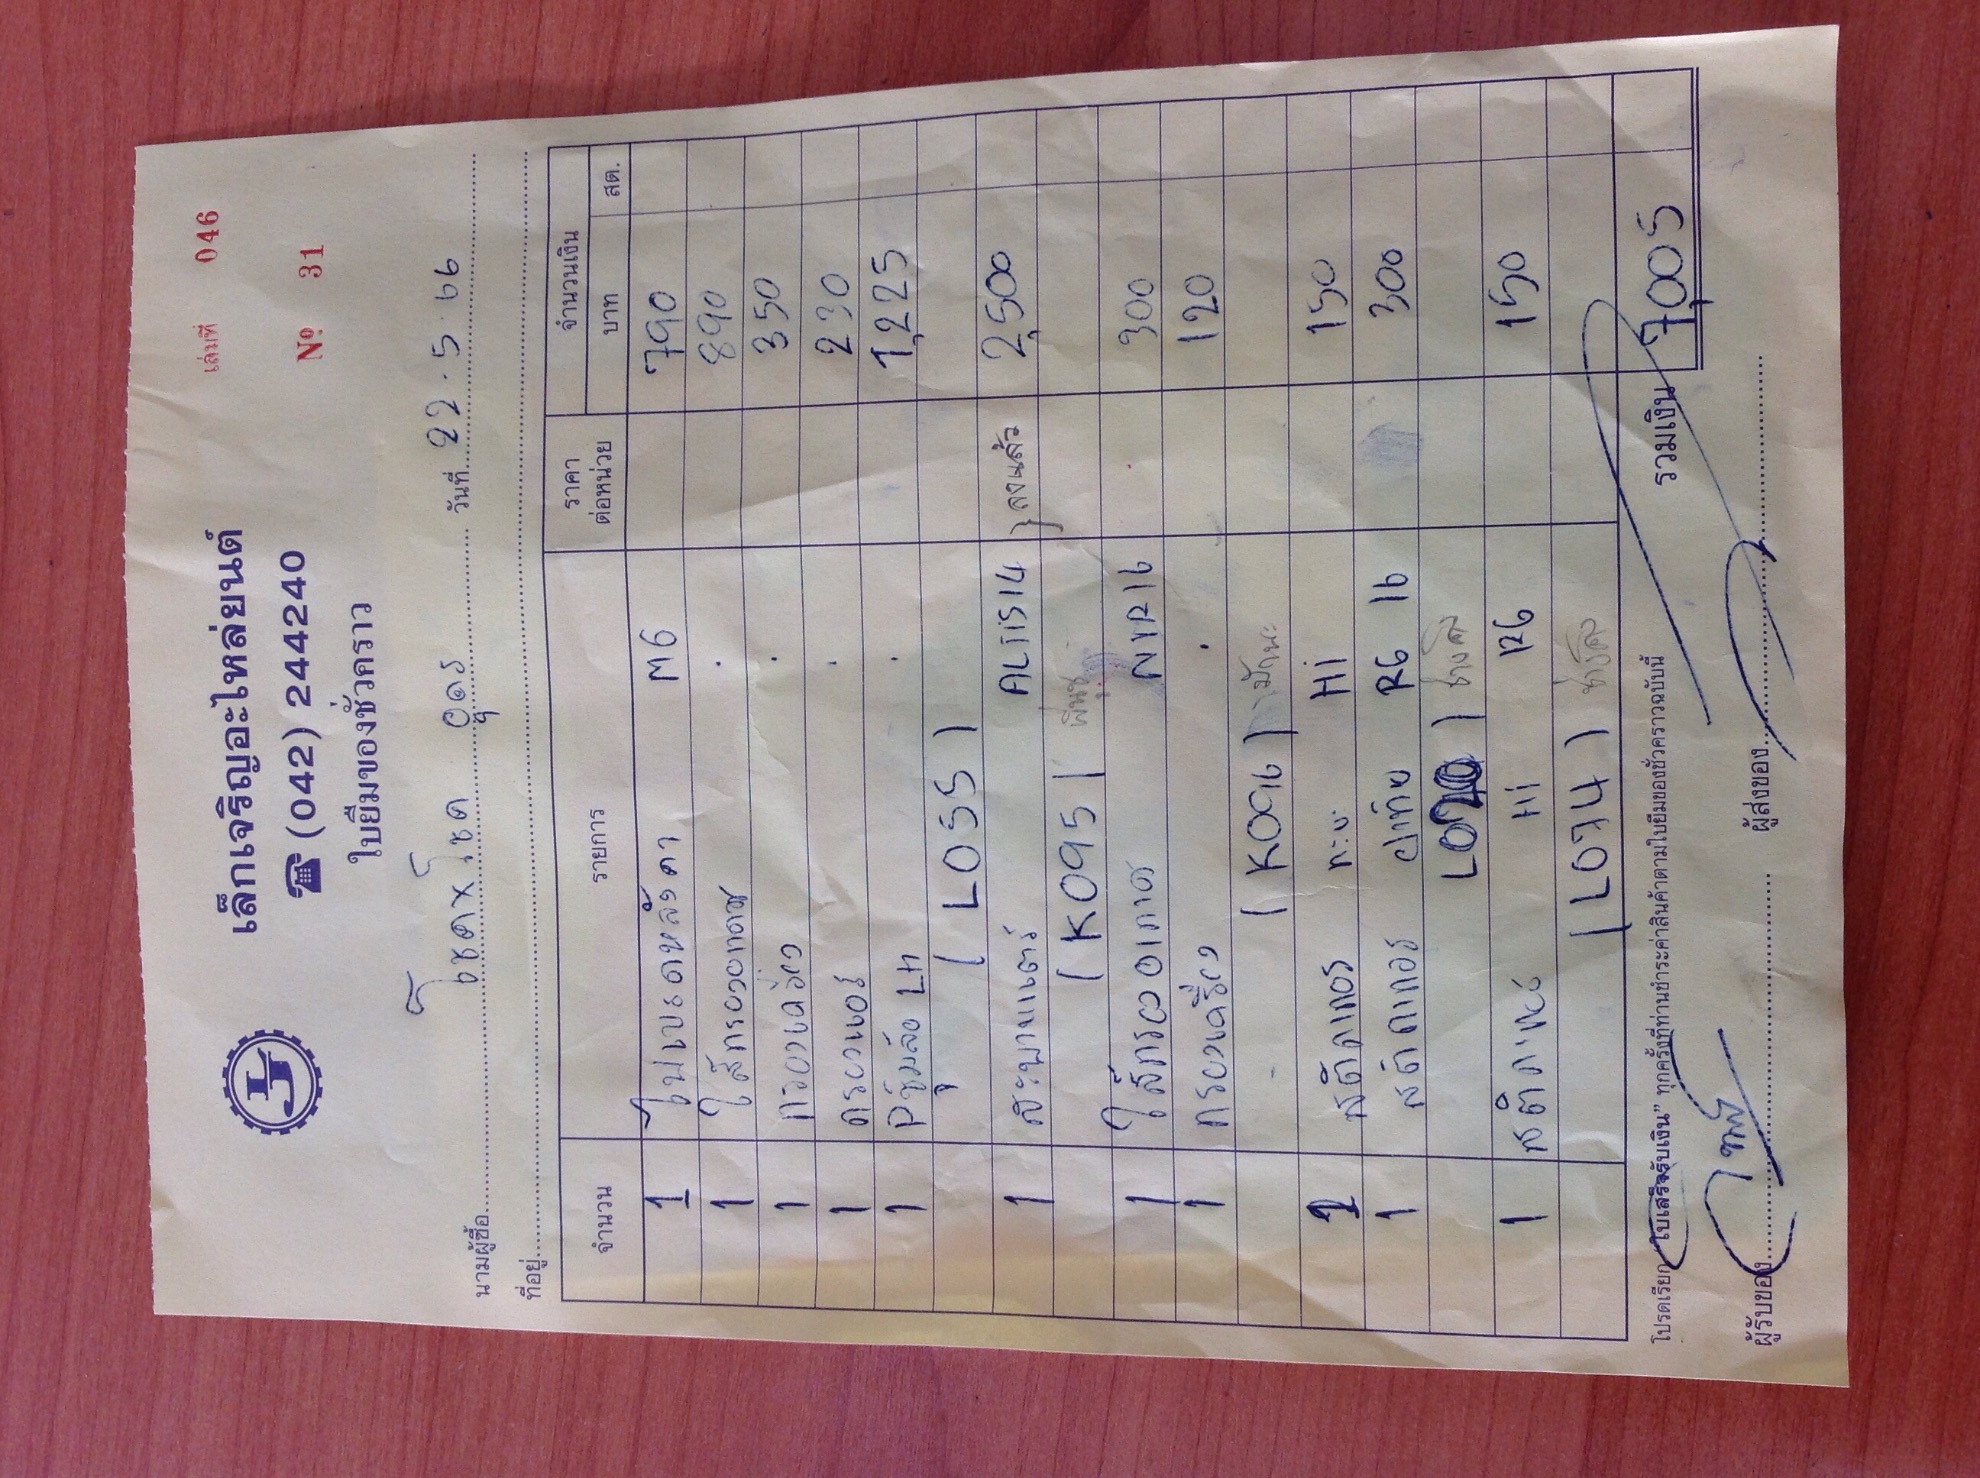 เล่มที่ 046
เล็กเจริญอะไหล่ยนต์
☎ (042) 244240
Nº 31
ใบยืมของชั่วคราว
นามผู้ซื้อ โชคxโชค อุดร วันที่ 22.5.66
ที่อยู่
จำนวน รายการ ราคาต่อหน่วย จำนวนเงิน
บาท สต.
1 ใบเบรคหลัง MG 790
1 ไส้กรองอากาศ . 890
1 กรองเครื่อง . 350
1 กรองแอร์ . 230
1 LH . 1,225
(L055)
1 ALTIS14 ลงแล้ว 2,500
(K095)
1 ไส้กรองอากาศ 16 300
1 กรองเครื่อง . 120
(K096)
สติกเกอร์ ก.ข. Hi 150
1 สติกเกอร์ R6 16 300
1 Hi 150
(L074)
รวมเงิน 7,005
โปรดเรียก "ใบเสร็จรับเงิน" ทุกครั้งที่ท่านชำระค่าสินค้าตามใบยืมของชั่วคราวฉบับนี้
ผู้รับของ ผู้ส่งของ